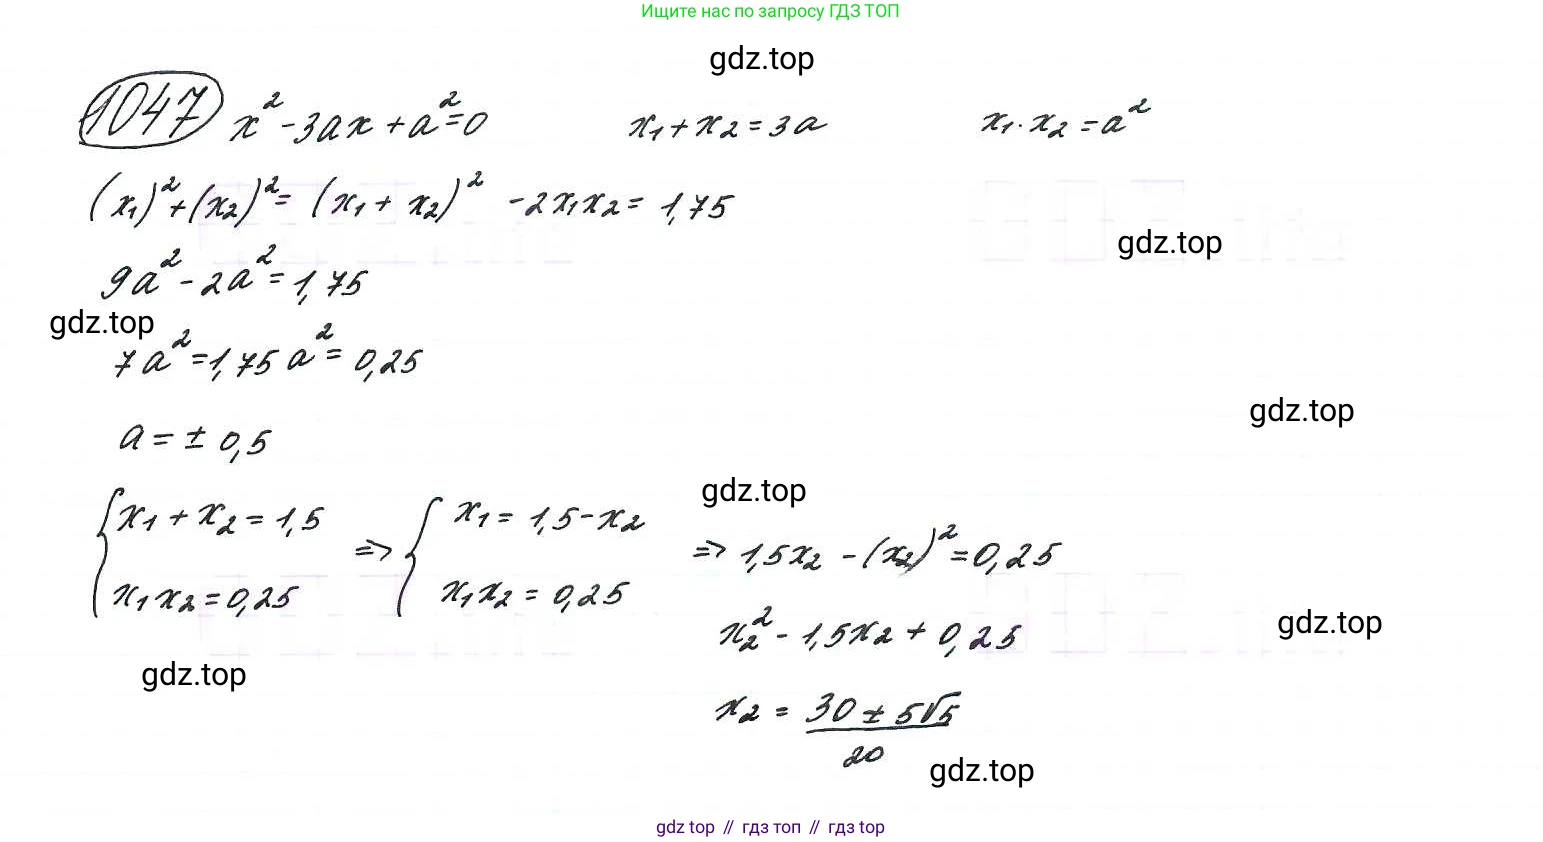 Ищите нас по запросу ГДЗ ТОП
gdz.top
1047 x² - 3ax + a² = 0 x₁ + x₂ = 3a x₁ · x₂ = a²
(x₁)² + (x₂)² = (x₁ + x₂)² - 2x₁x₂ = 1,75
gdz.top
9a² - 2a² = 1,75
gdz.top
7a² = 1,75 a² = 0,25
gdz.top
a = ± 0,5
gdz.top
{ x₁ + x₂ = 1,5 => { x₁ = 1,5 - x₂ => 1,5x₂ - (x₂)² = 0,25
x₁x₂ = 0,25 x₁x₂ = 0,25
x₂² - 1,5x₂ + 0,25
gdz.top
gdz.top
x₂ = 30 ± 5√5
20
gdz.top
gdz top // гдз топ // gdz top